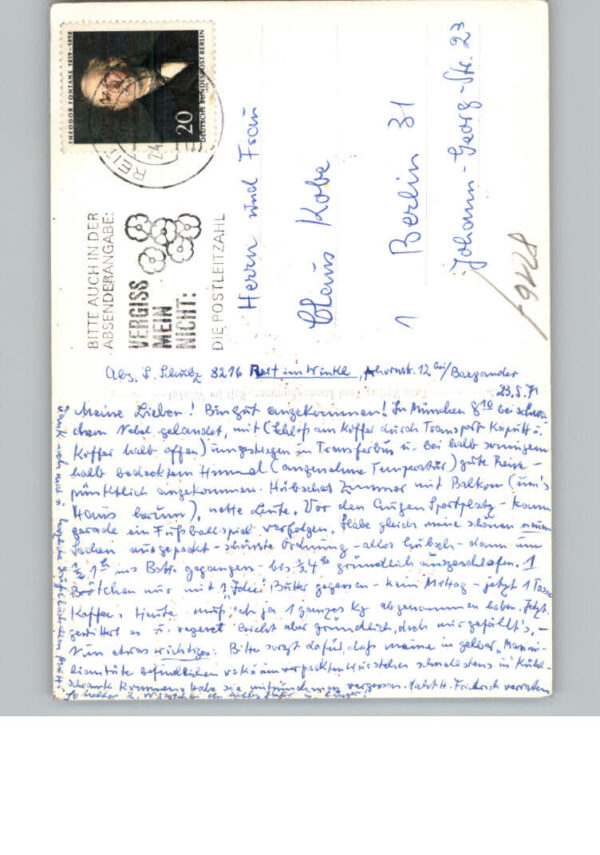 THEODOR FONTANE 1819-1898
20
DEUTSCHE BUNDESPOST BERLIN
REIT
24.
BITTE AUCH IN DER
ABSENDERANGABE:
VERGISS
MEIN
NICHT:
DIE POSTLEITZAHL
Herrn und Frau
Claus Kobe
1 Berlin 31
Johann-Georg-Str. 23
Abs. S. Schulz 8216 Reit im Winkl, Ahornstr. 12 bei/
23.5.71
Meine Lieben! Bin gut angekommen! In München 8 10 bei schwa-
chem Nebel gelandet, mit (Schloß am Koffer durch Transport kaputt u.
Koffer halb offen) umgestiegen in Transferbus u. bei halb sonnigem
halb bedecktem Himmel (angenehme Temperatur) gute Reise -
pünktlich angekommen. Hübsches Zimmer mit Balkon (um's
Haus herum), nette Leute. Vor den Augen Sportplatz - kann
gerade ein Fußballspiel verfolgen. Habe gleich meine schönen neuen
Sachen ausgepackt - schönste Ordnung - alles hübsch - dann um
ins Bett gegangen - bis gründlich ausgeschlafen. 1
Brötchen nur mit Butter gegessen - kein Mittag - jetzt 1 Tasse
Kaffee. Heute muß ich ja 1 ganzes Kg abgenommen haben. Jetzt
gewittert es u. regnet leicht aber gründlich, doch mir gefällt's, -
Nun etwas wichtiges: Bitte sorgt dafür, daß meine in gelber
befindlichen vakuumverpackten Würstchen schnellstens in Kühl-
schrank kommen, habe sie mitzunehmen vergessen.